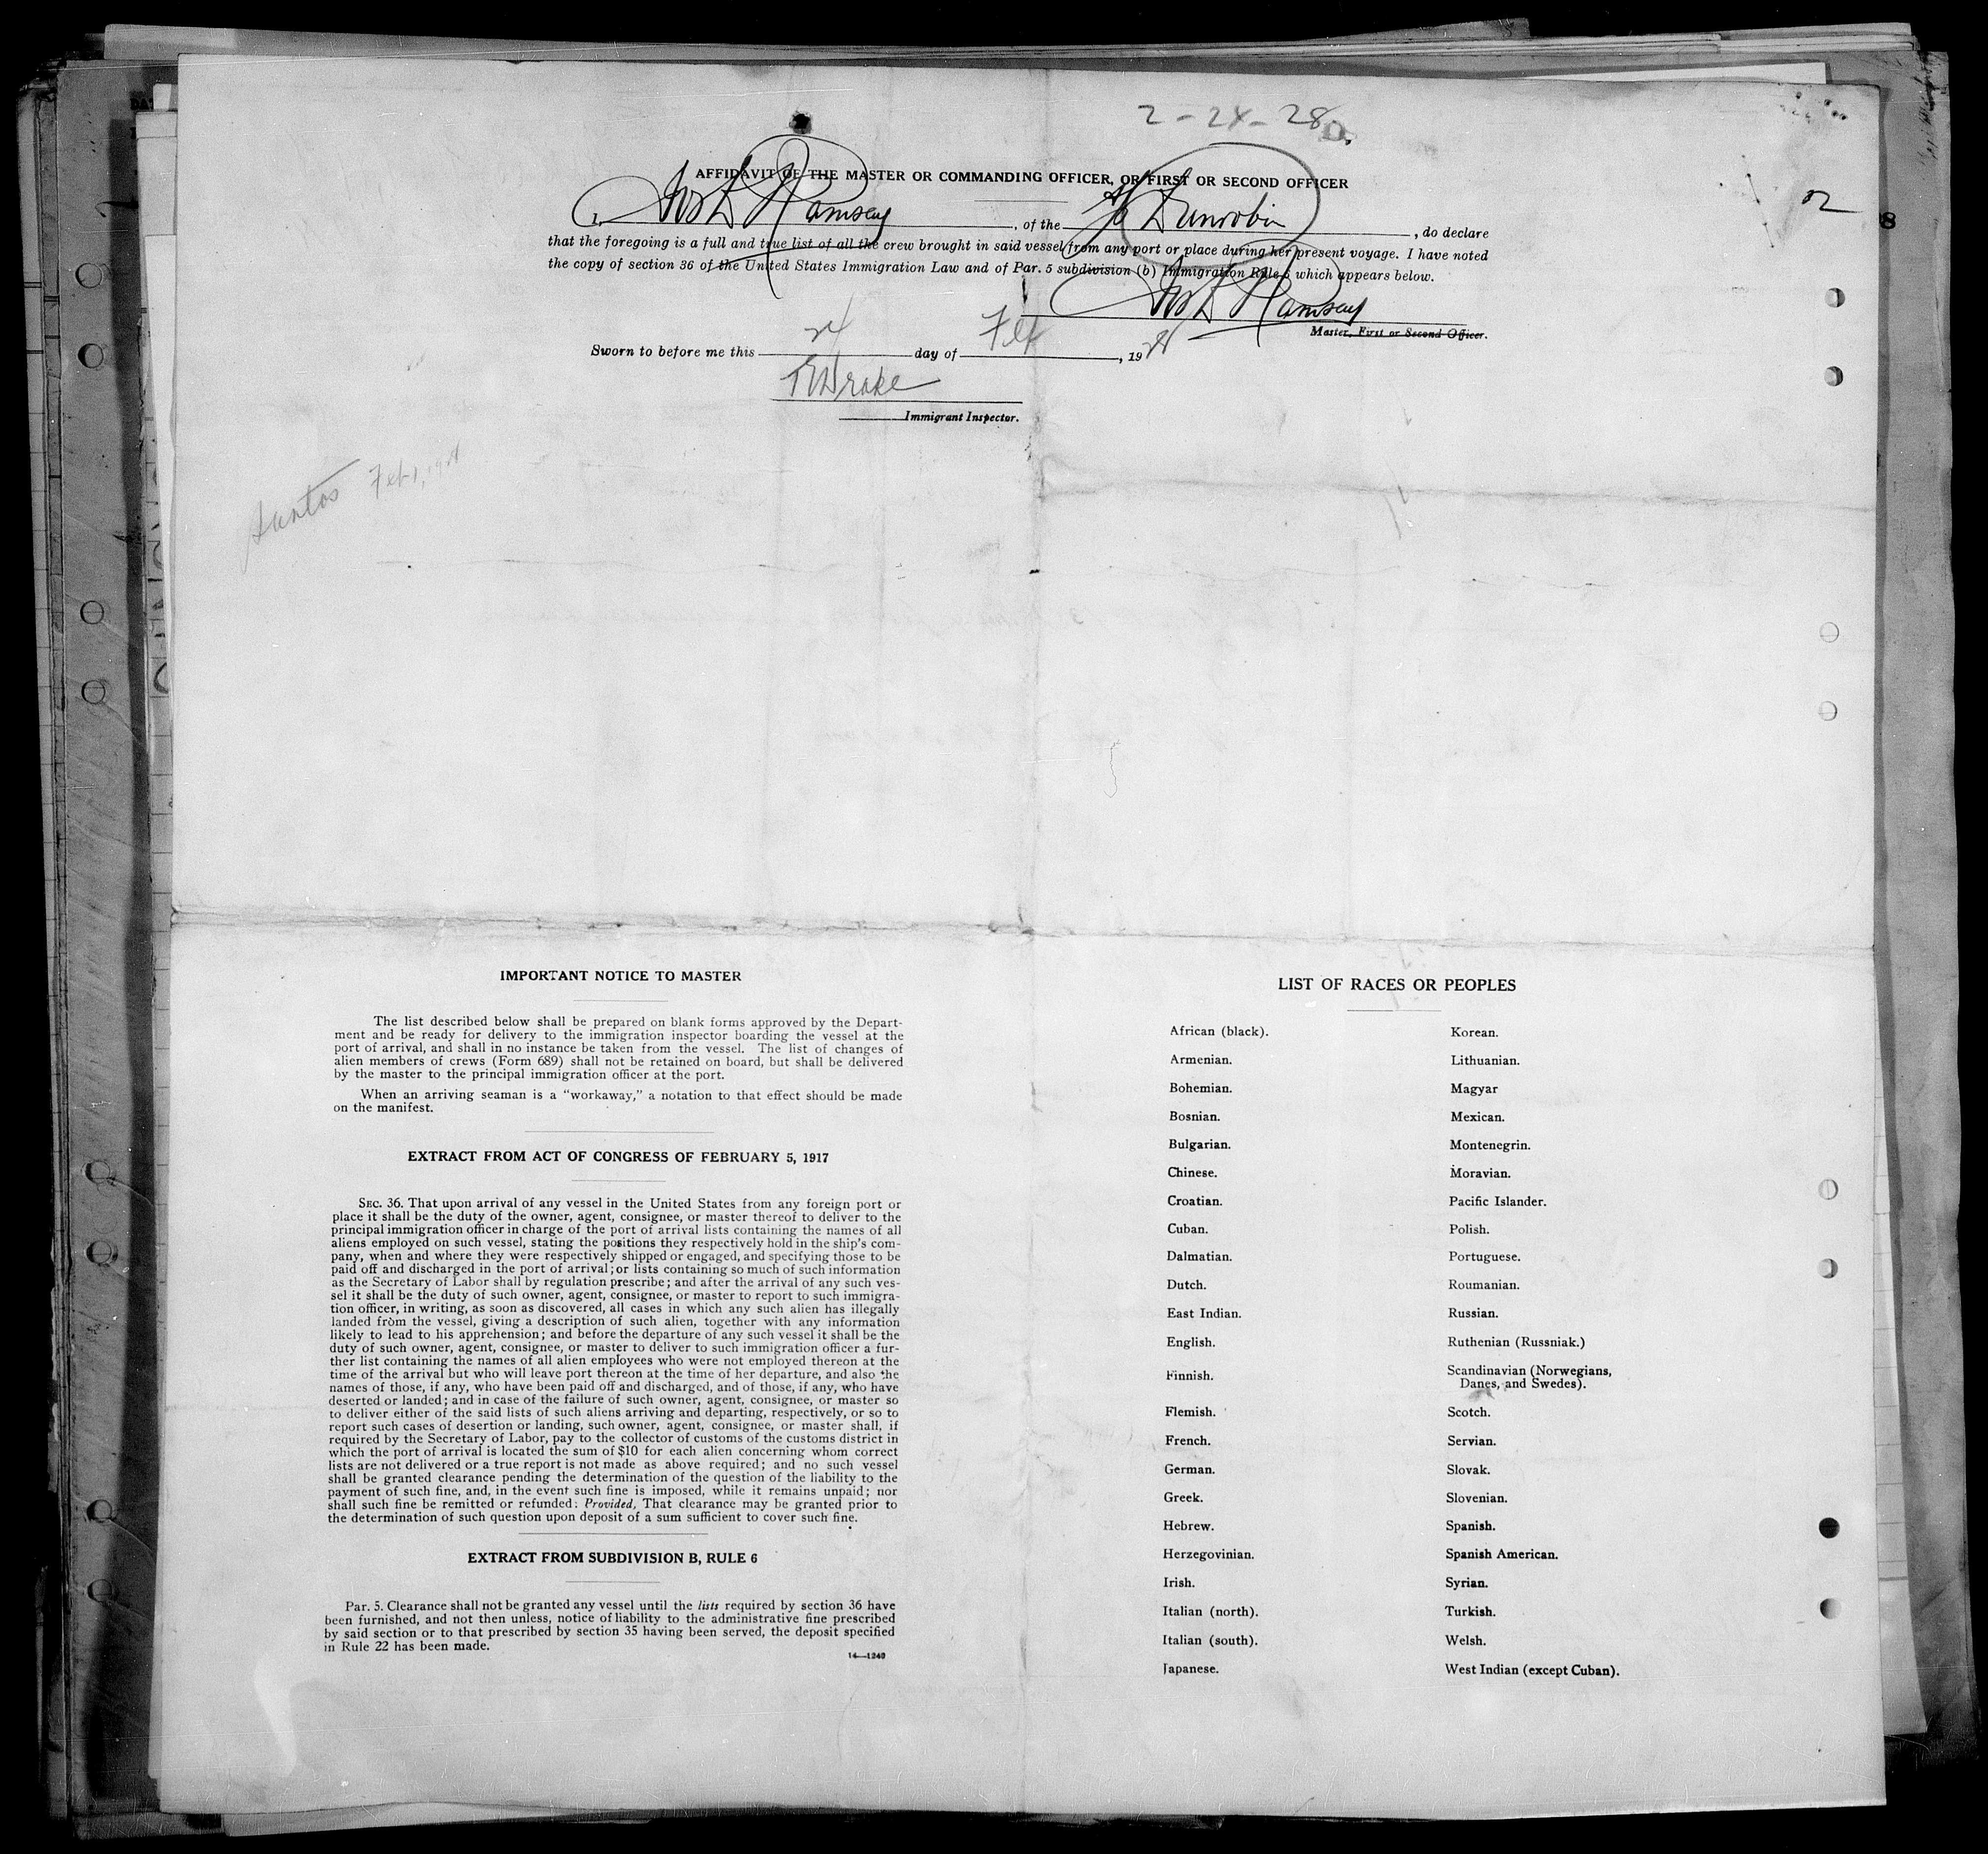 2-24-28
AFFIDAVIT OF THE MASTER OR COMMANDING OFFICER, OR FIRST OR SECOND OFFICER
I, Ramsey, of the Dunrobin, do declare
that the foregoing is a full and true list of all the crew brought in said vessel from any port or place during her present voyage. I have noted
the copy of section 36 of the United States Immigration Law and of Par. 5 subdivision (b) Immigration Rule 6 which appears below.
Ramsey
Master, First or Second Officer.
Sworn to before me this 24 day of Feb, 1928
Drake
Immigrant Inspector.
Santos Feb 1, 1928
IMPORTANT NOTICE TO MASTER
The list described below shall be prepared on blank forms approved by the Depart-
ment and be ready for delivery to the immigration inspector boarding the vessel at the
port of arrival, and shall in no instance be taken from the vessel. The list of changes of
alien members of crews (Form 689) shall not be retained on board, but shall be delivered
by the master to the principal immigration officer at the port.
When an arriving seaman is a "workaway," a notation to that effect should be made
on the manifest.
EXTRACT FROM ACT OF CONGRESS OF FEBRUARY 5, 1917
SEC. 36. That upon arrival of any vessel in the United States from any foreign port or
place it shall be the duty of the owner, agent, consignee, or master thereof to deliver to the
principal immigration officer in charge of the port of arrival lists containing the names of all
aliens employed on such vessel, stating the positions they respectively hold in the ship's com-
pany, when and where they were respectively shipped or engaged, and specifying those to be
paid off and discharged in the port of arrival; or lists containing so much of such information
as the Secretary of Labor shall by regulation prescribe; and after the arrival of any such ves-
sel it shall be the duty of such owner, agent, consignee, or master to report to such immigra-
tion officer, in writing, as soon as discovered, all cases in which any such alien has illegally
landed from the vessel, giving a description of such alien, together with any information
likely to lead to his apprehension; and before the departure of any such vessel it shall be the
duty of such owner, agent, consignee, or master to deliver to such immigration officer a fur-
ther list containing the names of all alien employees who were not employed thereon at the
time of the arrival but who will leave port thereon at the time of her departure, and also the
names of those, if any, who have been paid off and discharged, and of those, if any, who have
deserted or landed; and in case of the failure of such owner, agent, consignee, or master so
to deliver either of the said lists of such aliens arriving and departing, respectively, or so to
report such cases of desertion or landing, such owner, agent, consignee, or master shall, if
required by the Secretary of Labor, pay to the collector of customs of the customs district in
which the port of arrival is located the sum of $10 for each alien concerning whom correct
lists are not delivered or a true report is not made as above required; and no such vessel
shall be granted clearance pending the determination of the question of the liability to the
payment of such fine, and, in the event such fine is imposed, while it remains unpaid; nor
shall such fine be remitted or refunded: Provided, That clearance may be granted prior to
the determination of such question upon deposit of a sum sufficient to cover such fine.
EXTRACT FROM SUBDIVISION B, RULE 6
Par. 5. Clearance shall not be granted any vessel until the lists required by section 36 have
been furnished, and not then unless, notice of liability to the administrative fine prescribed
by said section or to that prescribed by section 35 having been served, the deposit specified
in Rule 22 has been made.
14—1240
LIST OF RACES OR PEOPLES
African (black).
Armenian.
Bohemian.
Bosnian.
Bulgarian.
Chinese.
Croatian.
Cuban.
Dalmatian.
Dutch.
East Indian.
English.
Finnish.
Flemish.
French.
German.
Greek.
Hebrew.
Herzegovinian.
Irish.
Italian (north).
Italian (south).
Japanese.
Korean.
Lithuanian.
Magyar
Mexican.
Montenegrin.
Moravian.
Pacific Islander.
Polish.
Portuguese.
Roumanian.
Russian.
Ruthenian (Russniak.)
Scandinavian (Norwegians,
Danes, and Swedes).
Scotch.
Servian.
Slovak.
Slovenian.
Spanish.
Spanish American.
Syrian.
Turkish.
Welsh.
West Indian (except Cuban).